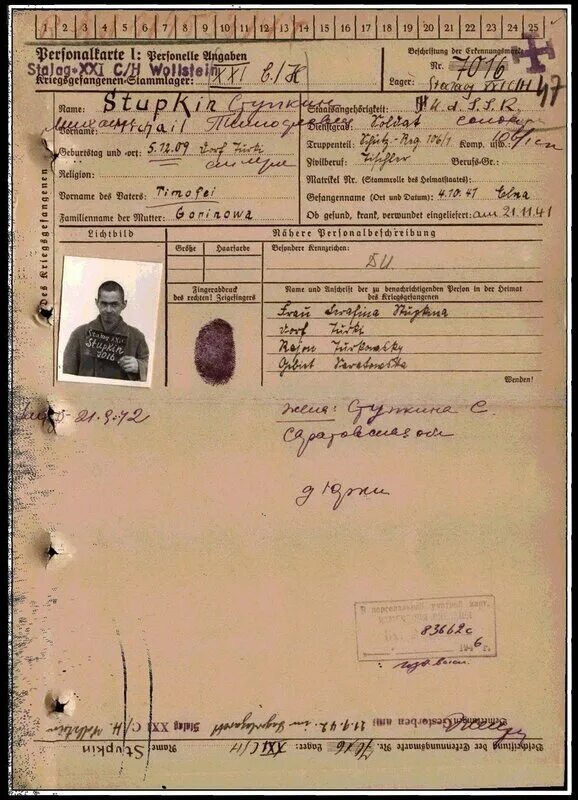 1 2 3 4 5 6 7 8 9 10 11 12 13 14 15 16 17 18 19 20 21 22 23 24 25
Personalkarte I: Personelle Angaben
Beschriftung der Erkennungsmarke
Stalag XXI C/H Wollstein
Nr. 7016
Kriegsgefangenen-Stammlager: XXI C/H
Lager: Stalag XXI C/H
47
Name: Stupkin Ступкин
Staatsangehörigkeit: U.d.S.S.R.
Vorname:
Dienstgrad: Soldat
Geburtstag und -ort: 5.12.09 Dorf Turki
Truppenteil: Schütz-Reg 106/1 Komp. usw.:
Religion:
Zivilberuf: Tischler Berufs-Gr.:
Matrikel Nr. (Stammrolle des Heimatstaates):
Vorname des Vaters: Timofei
Gefangennahme (Ort und Datum): 4.10.41 Elna
Familienname der Mutter: Gorinowa
Ob gesund, krank, verwundet eingeliefert: am 21.11.41
Des Kriegsgefangenen
Lichtbild
Nähere Personalbeschreibung
Größe
Haarfarbe
Besondere Kennzeichen:
Fingerabdruck
des rechten! Zeigefingers
Name und Anschrift der zu benachrichtigenden Person in der Heimat
des Kriegsgefangenen
Frau Serafina Stupkina
Dorf Turki
Rajon Turkowsky
Gebiet Saratowska
Wenden!
Stalag XXI
Stupkin
7016
21.9.42
жена: Ступкина С.
Саратовская обл
В персональный учетный карт.
83662с
194 6 г.
Bemerkungen: Gestorben am:
Stalag XXI C/H
Beschriftung der Erkennungsmarke Nr. 7016 Lager: XXI C/H Name Stupkin